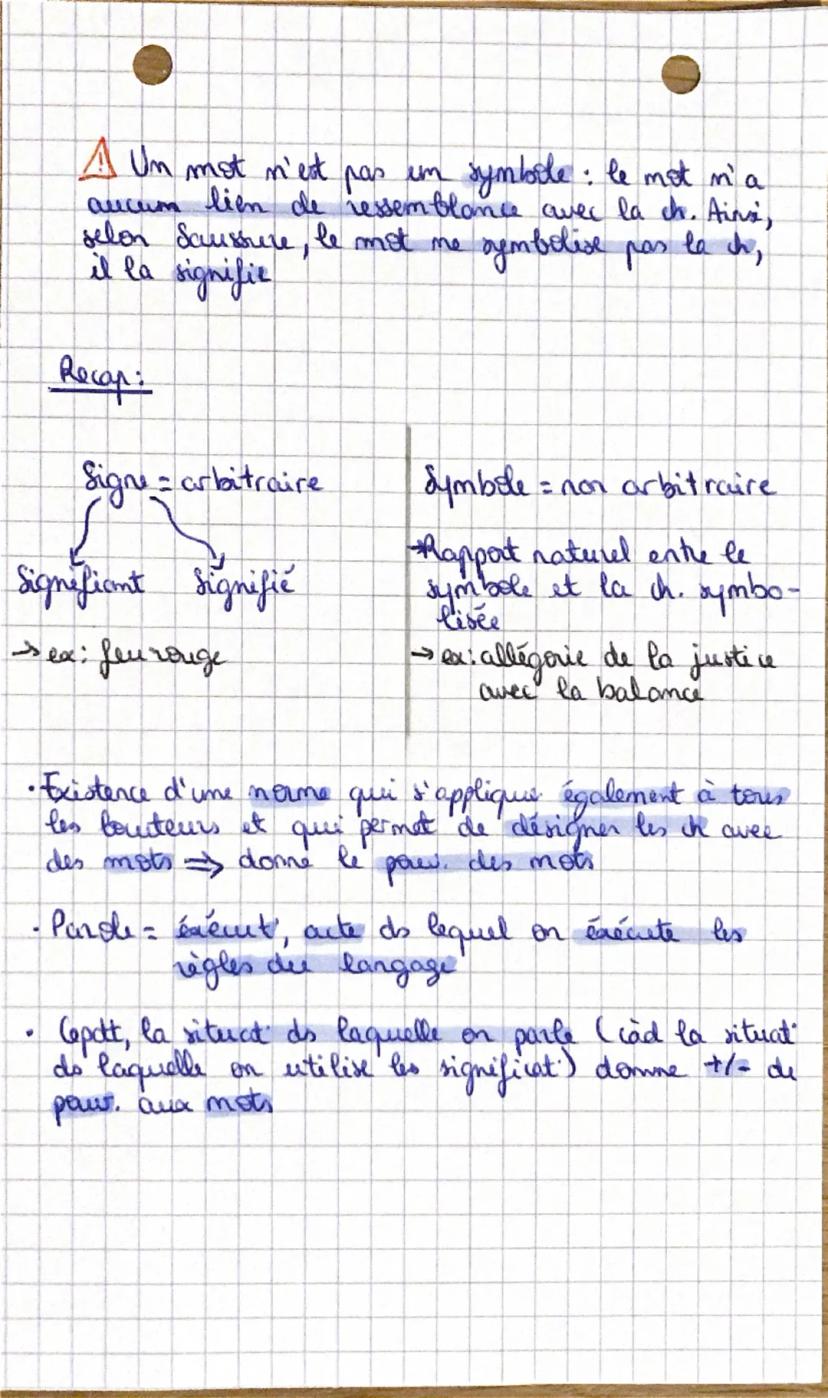 ⚠ Un mot n'est pas un symbole : le mot n'a
aucun lien de ressemblance avec la ch. Ainsi,
selon Saussure, le mot ne symbolise pas la ch,
il la signifie
Recap :
Signe = arbitraire
Signifiant Signifié
→ ex : feu rouge
Symbole = non arbitraire
→ Rapport naturel entre le
symbole et la ch. symbo-
lisée
→ ex : allégorie de la justice
avec la balance
· Existence d'une norme qui s'applique également à tous
les locuteurs et qui permet de désigner les ch avec
des mots ⇒ donne le pouv. des mots
· Parole = éxécut°, acte ds lequel on éxécute les
règles du langage
· Cpdtt, la situat° ds laquelle on parle (càd la situat°
ds laquelle on utilise les significat°) donne +/- de
pouv. aux mots